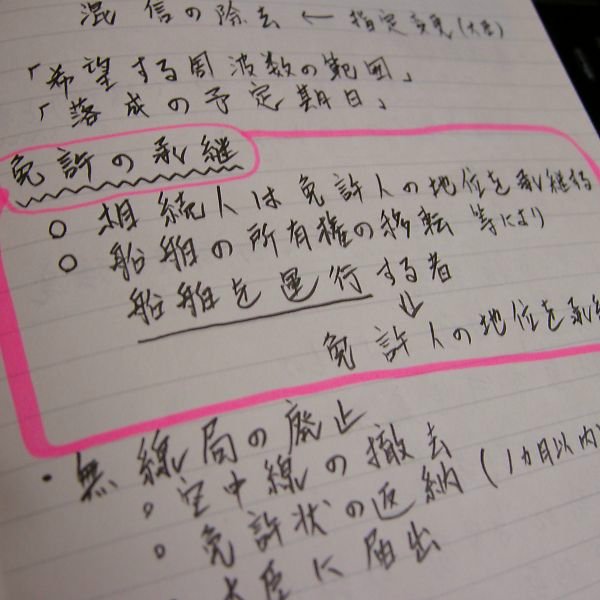 混信の除去 ← 指定変更(大臣)
「希望する周波数の範囲」
「落成の予定期日」
免許の承継
○ 相続人は免許人の地位を承継
○ 船舶の所有権の移転 等により
船舶を運行する者
⇓
免許人の地位を承
・無線局の廃止
○ 空中線の撤去
○ 免許状の返納 (1カ月以内
大臣に届出